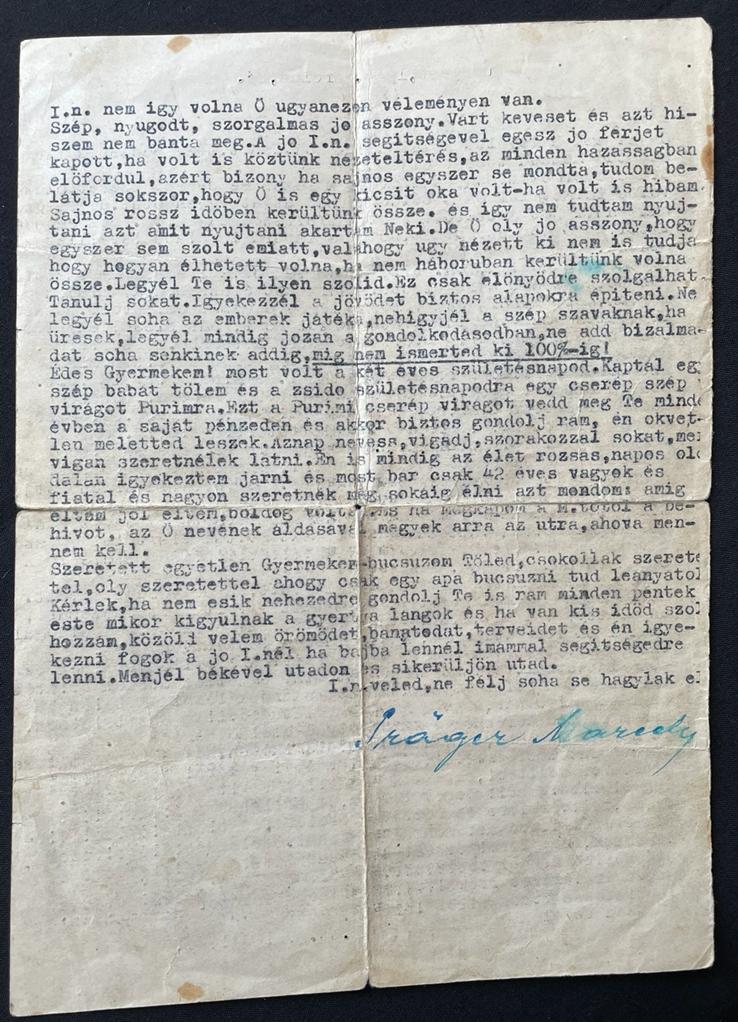 I.n. nem igy volna Ö ugyanezen véleményen van.
Szép, nyugodt, szorgalmas jo asszony.Várt keveset és azt hi-
szem nem bánta meg.A jo I.n. segitségével egesz jo férjet
kapott,ha volt is köztünk nézeteltérés,az minden hazassagban
elöfordul,azért bizony ha sajnos egyszer se mondta,tudom be-
látja sokszor,hogy Ö is egy kicsit oka volt-ha volt is hibam.
Sajnos rossz idöben kerültünk össze. és igy nem tudtam nyuj-
tani azt amit nyujtani akartam Neki.De Ö oly jo asszony,hogy
egyszer sem szolt emiatt,valahogy ugy nézett ki nem is tudja
hogy hogyan élhetett volna,ha nem háboruban kerültünk volna
össze.Legyél Te is ilyen szolid.Ez csak elönyödre szolgalhat.
Tanulj sokat.Igyekezzél a jövödet biztos alapokra épiteni.Ne
legyél soha az emberek játéka,nehigyjél a szép szavaknak,ha
üresek,legyél mindig jozan a gondolkodásodban,ne add bizalma-
dat soha senkinek addig,mig nem ismerted ki 100%-ig!
Édes Gyermekem! most volt a két éves születésnapod.Kaptál egy
szép babát tölem és a zsido születésnapodra egy cserép szép
virágot Purimra.Ezt a Purimi cserép virágot vedd meg Te minde
évben a saját pénzeden és akkor biztos gondolj rám, én okvet-
len meletted leszek.Aznap nevess,vigadj,szorakozzal sokat,me
vigan szeretnélek latni.Én is mindig az élet rozsas,napos ol
dalan igyekeztem járni és most,bar csak 42 éves vagyok és
fiatal és nagyon szeretnék még sokáig élni azt mondom: amig
éltem jol éltem,boldog voltam.És ha megkapom a M.totol a be-
hivot, az Ö nevének áldásával megyek arra az utra,ahova men-
nem kell.
Szeretett egyetlen Gyermekem-bucsuzom Töled,csokollak szerete
tel,oly szeretettel ahogy csak egy apa bucsuzni tud leányatol
Kérlek,ha nem esik nehezedre gondolj Te is ram minden péntek
este mikor kigyulnak a gyertya langok és ha van kis idöd szol
hozzám,közöld velem örömödet,bánatodat,terveidet és én igye-
kezni fogok a jo I.nél ha bajba lennél imammal segitségedre
lenni.Menjél békével utadon és sikerüljön utad.
I.n.veled,ne félj soha se hagylak el
Präger